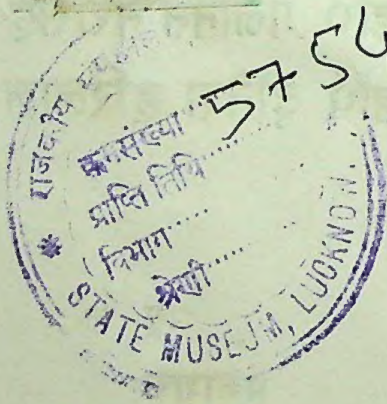 राजकीय
क्रमसंख्या ........ 575
प्राप्ति तिथि ........
विभाग ........
श्रेणी ........
* STATE MUSEUM, LUCKNOW.